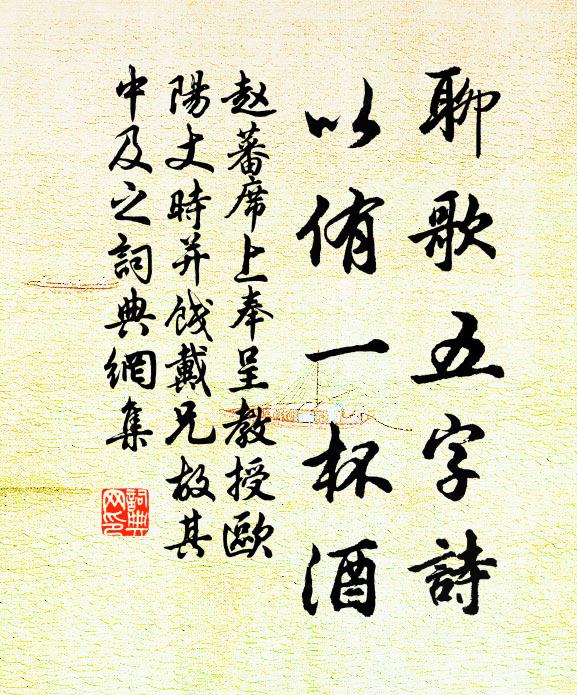 聊歌五字詩
以侑一杯酒
赵蕃席上奉呈教授歐
陽丈時并餞戴兄故其
中及之詞典網集
詞典
网印